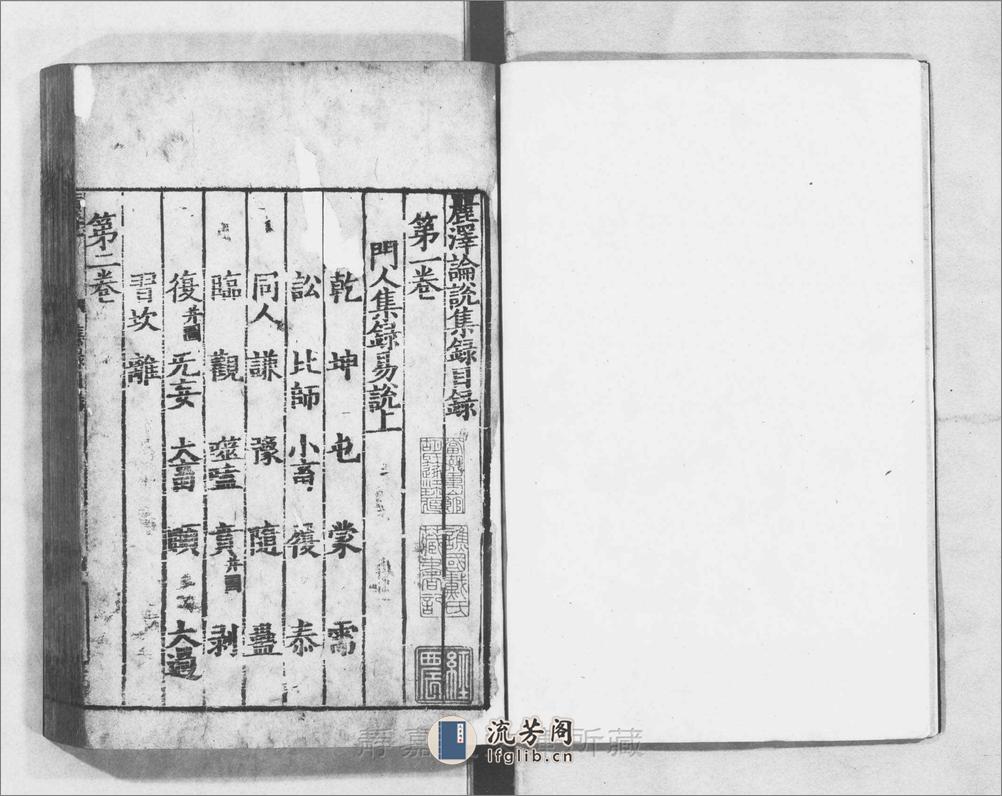 麗澤論說集録目録
第一卷
門人集録易說上
乾 坤 屯 蒙 需
訟 比師 小畜 履 泰
同人 謙 豫 隨 蠱
臨 觀 噬嗑 賁并圖 剥
復并圖 无妄 大畜 頤 大過
習坎 離
第二卷
譙國戴氏
藏書記
流芳阁
lfglib.cn
所藏